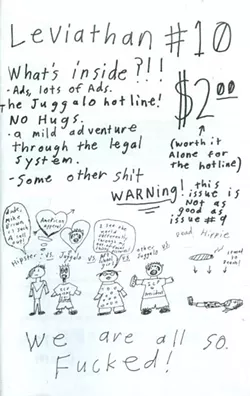 Leviathan #10
What's inside?!!!
- Ads, lots of Ads.
The Juggalo hotline!
NO Hugs.
- a mild adventure
through the legal
system.
- Some other shit
$2.00
(worth it
Alone for
the hotline)
WARNING! this
issue is
Not as
good as
issue #9
American
Apparel
Hipster vs. Juggalo vs. vs. other
Juggalo vs.
Dead Hippie
We are all so
Fucked!